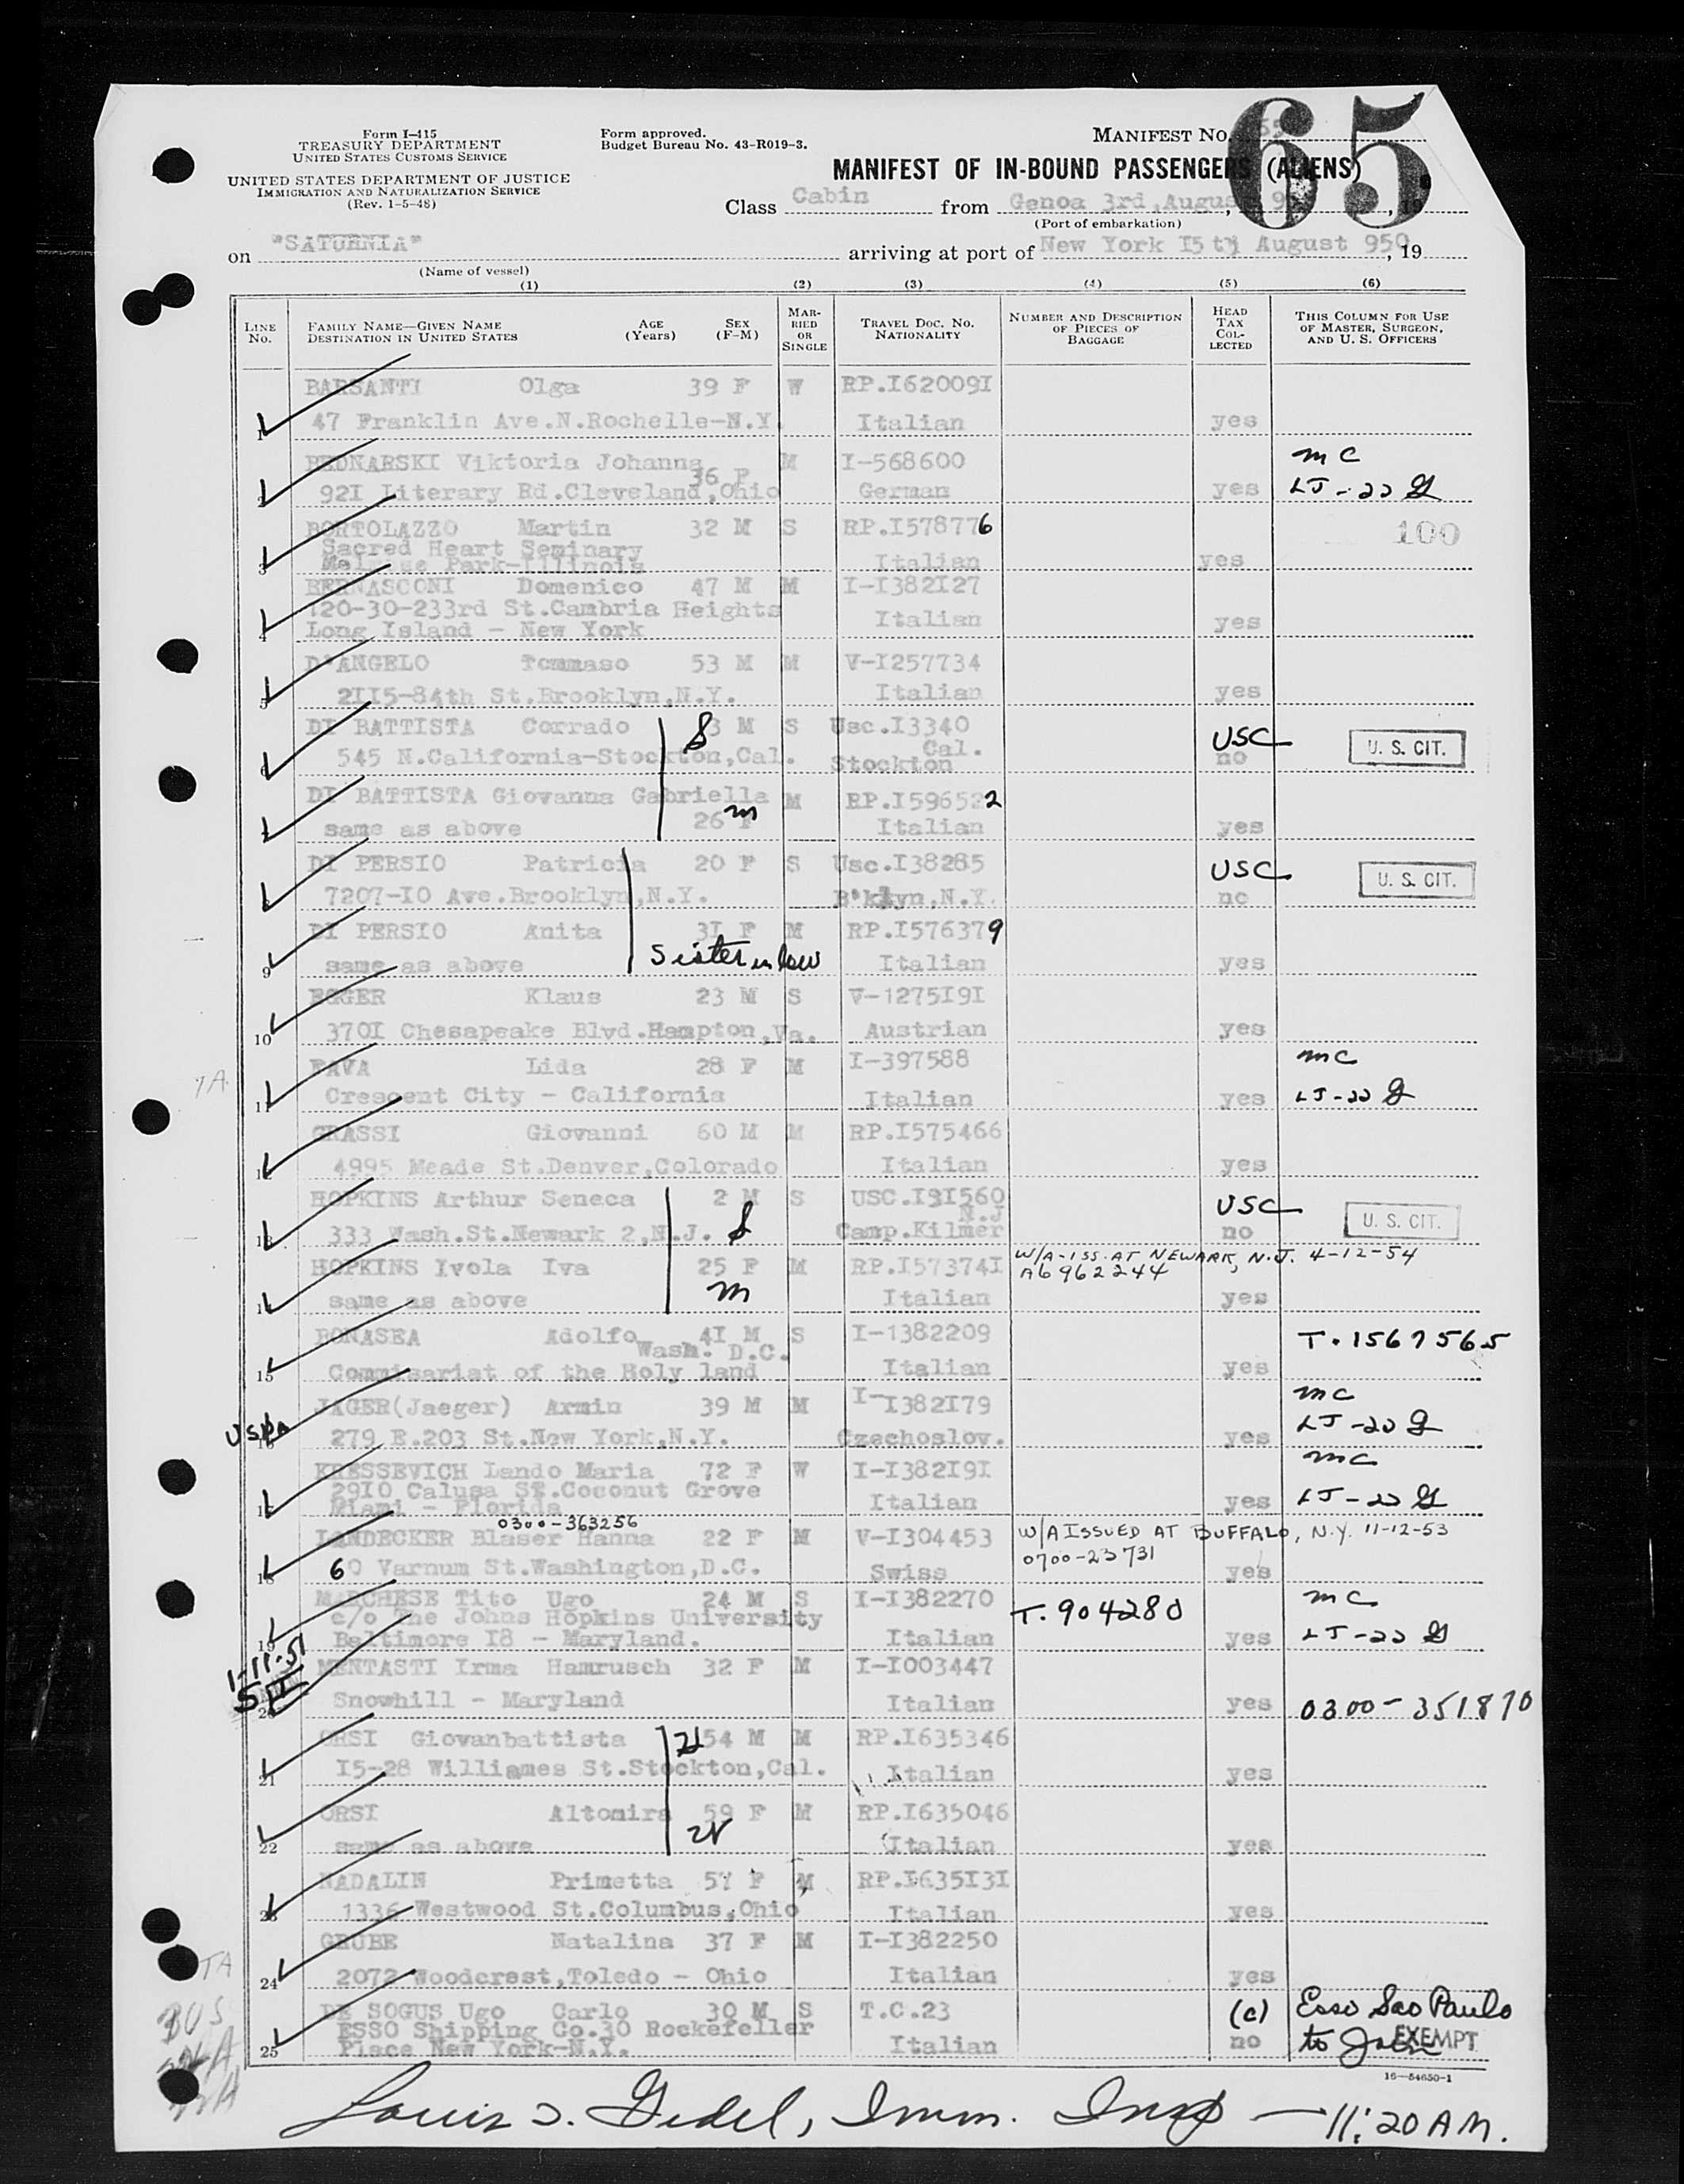 Form I-415
TREASURY DEPARTMENT
UNITED STATES CUSTOMS SERVICE
UNITED STATES DEPARTMENT OF JUSTICE
IMMIGRATION AND NATURALIZATION SERVICE
(Rev. 1-5-48)
Form approved.
Budget Bureau No. 43-R019-3.
MANIFEST NO.
65
MANIFEST OF IN-BOUND PASSENGERS (ALIENS)
Class Cabin from Genoa 3rd,August, 19
(Port of embarkation)
on "SATURNIA" arriving at port of New York I5 August 950, 19
(Name of vessel)
(1) (2) (3) (4) (5) (6)
LINE No. FAMILY NAME—GIVEN NAME DESTINATION IN UNITED STATES AGE (Years) SEX (F-M) MARRIED OR SINGLE TRAVEL DOC. NO. NATIONALITY NUMBER AND DESCRIPTION OF PIECES OF BAGGAGE HEAD TAX COLLECTED THIS COLUMN FOR USE OF MASTER, SURGEON, AND U. S. OFFICERS
BARSANTI Olga 39 F W RP.I62009I
1 47 Franklin Ave.N.Rochelle-N.Y. Italian yes
BEDNARSKI Viktoria Johanna 36 F M I-568600 mc
2 92I Literary Rd.Cleveland,Ohio German yes LJ-22
BORTOLAZZO Martin 32 M S RP.I578776 100
Sacred Heart Seminary
3 Park-Illinois Italian yes
BERNASCONI Domenico 47 M M I-I382I27
120-30-233rd St.Cambria Heights Italian
4 Long Island - New York yes
D'ANGELO Tommaso 53 M M V-I257734
5 2II5-84th St.Brooklyn,N.Y. Italian yes
DI BATTISTA Corrado 3 M S Usc.I3340 USC U. S. CIT.
6 545 N.California-Stockton,Cal. Stockton Cal. no
DI BATTISTA Giovanna Gabriella M RP.I596522
7 same as above 26 F m Italian yes
DI PERSIO Patricia 20 F S Usc.I38285 USC U. S. CIT.
8 7207-IO Ave.Brooklyn,N.Y. B'klyn,N.Y. no
DI PERSIO Anita 3I F M RP.I576379
9 same as above Sister in law Italian yes
EGGER Klaus 23 M S V-I275I9I
10 370I Chesapeake Blvd.Hampton,Va. Austrian yes
FAVA Lida 28 F M I-397588 mc
11 Crescent City - California Italian yes LJ-22
GRASSI Giovanni 60 M M RP.I575466
12 4995 Meade St.Denver,Colorado Italian yes
HOPKINS Arthur Seneca 2 M S USC.I3I560 USC U. S. CIT.
13 333 Wash.St.Newark 2,N.J. Camp.Kilmer N.J no
HOPKINS Ivola Iva 25 F M RP.I57374I W/A-ISS. AT NEWARK, N.J. 4-12-54
A6 962244
14 same as above m Italian yes
BONASEA Adolfo 4I M S I-I382209 T.1567565
15 Commisariat of the Holy land Wash. D.C. Italian yes
JAGER(Jaeger) Armin 39 M M I-I382I79 mc
16 279 E.203 St.New York,N.Y. Czechoslov. yes LJ-20
KRESSEVICH Lando Maria 72 F W I-I382I9I mc
29IO Calusa St.Coconut Grove
17 Miami - Florida Italian yes LJ-22
0300-363256
LANDECKER Blaser Hanna 22 F M V-I304453 W/A ISSUED AT BUFFALO, N.Y. 11-12-53
0700-23731
18 60 Varnum St.Washington,D.C. Swiss yes
MARCHESE Tito Ugo 24 M S I-I382270 T.904280 mc
c/o The Johns Hopkins University
19 Baltimore I8 - Maryland. Italian yes LJ-22
1-11-51
MENTASTI Irma Hamrusch 32 F M I-I003447
20 Snowhill - Maryland Italian yes 0300-351870
ORSI Giovanbattista 54 M M RP.I635346
21 I5-28 Williames St.Stockton,Cal. Italian yes
ORSI Altomira 59 F M RP.I635046
22 same as above Italian yes
NADALIN Primetta 57 F M RP.I635I3I
23 1336 Westwood St.Columbus,Ohio Italian yes
GRUBE Natalina 37 F M I-I382250
24 2072 Woodcrest,Toledo - Ohio Italian yes
DE SOGUS Ugo Carlo 30 M S T.C.23 (c) Esso Sao Paulo
ESSO Shipping Co.30 Rockefeller
25 Place New York-N.Y. Italian no to Join EXEMPT
16—54650-1
Louis J. Gedel, Imm. Insp — 11:20 AM.